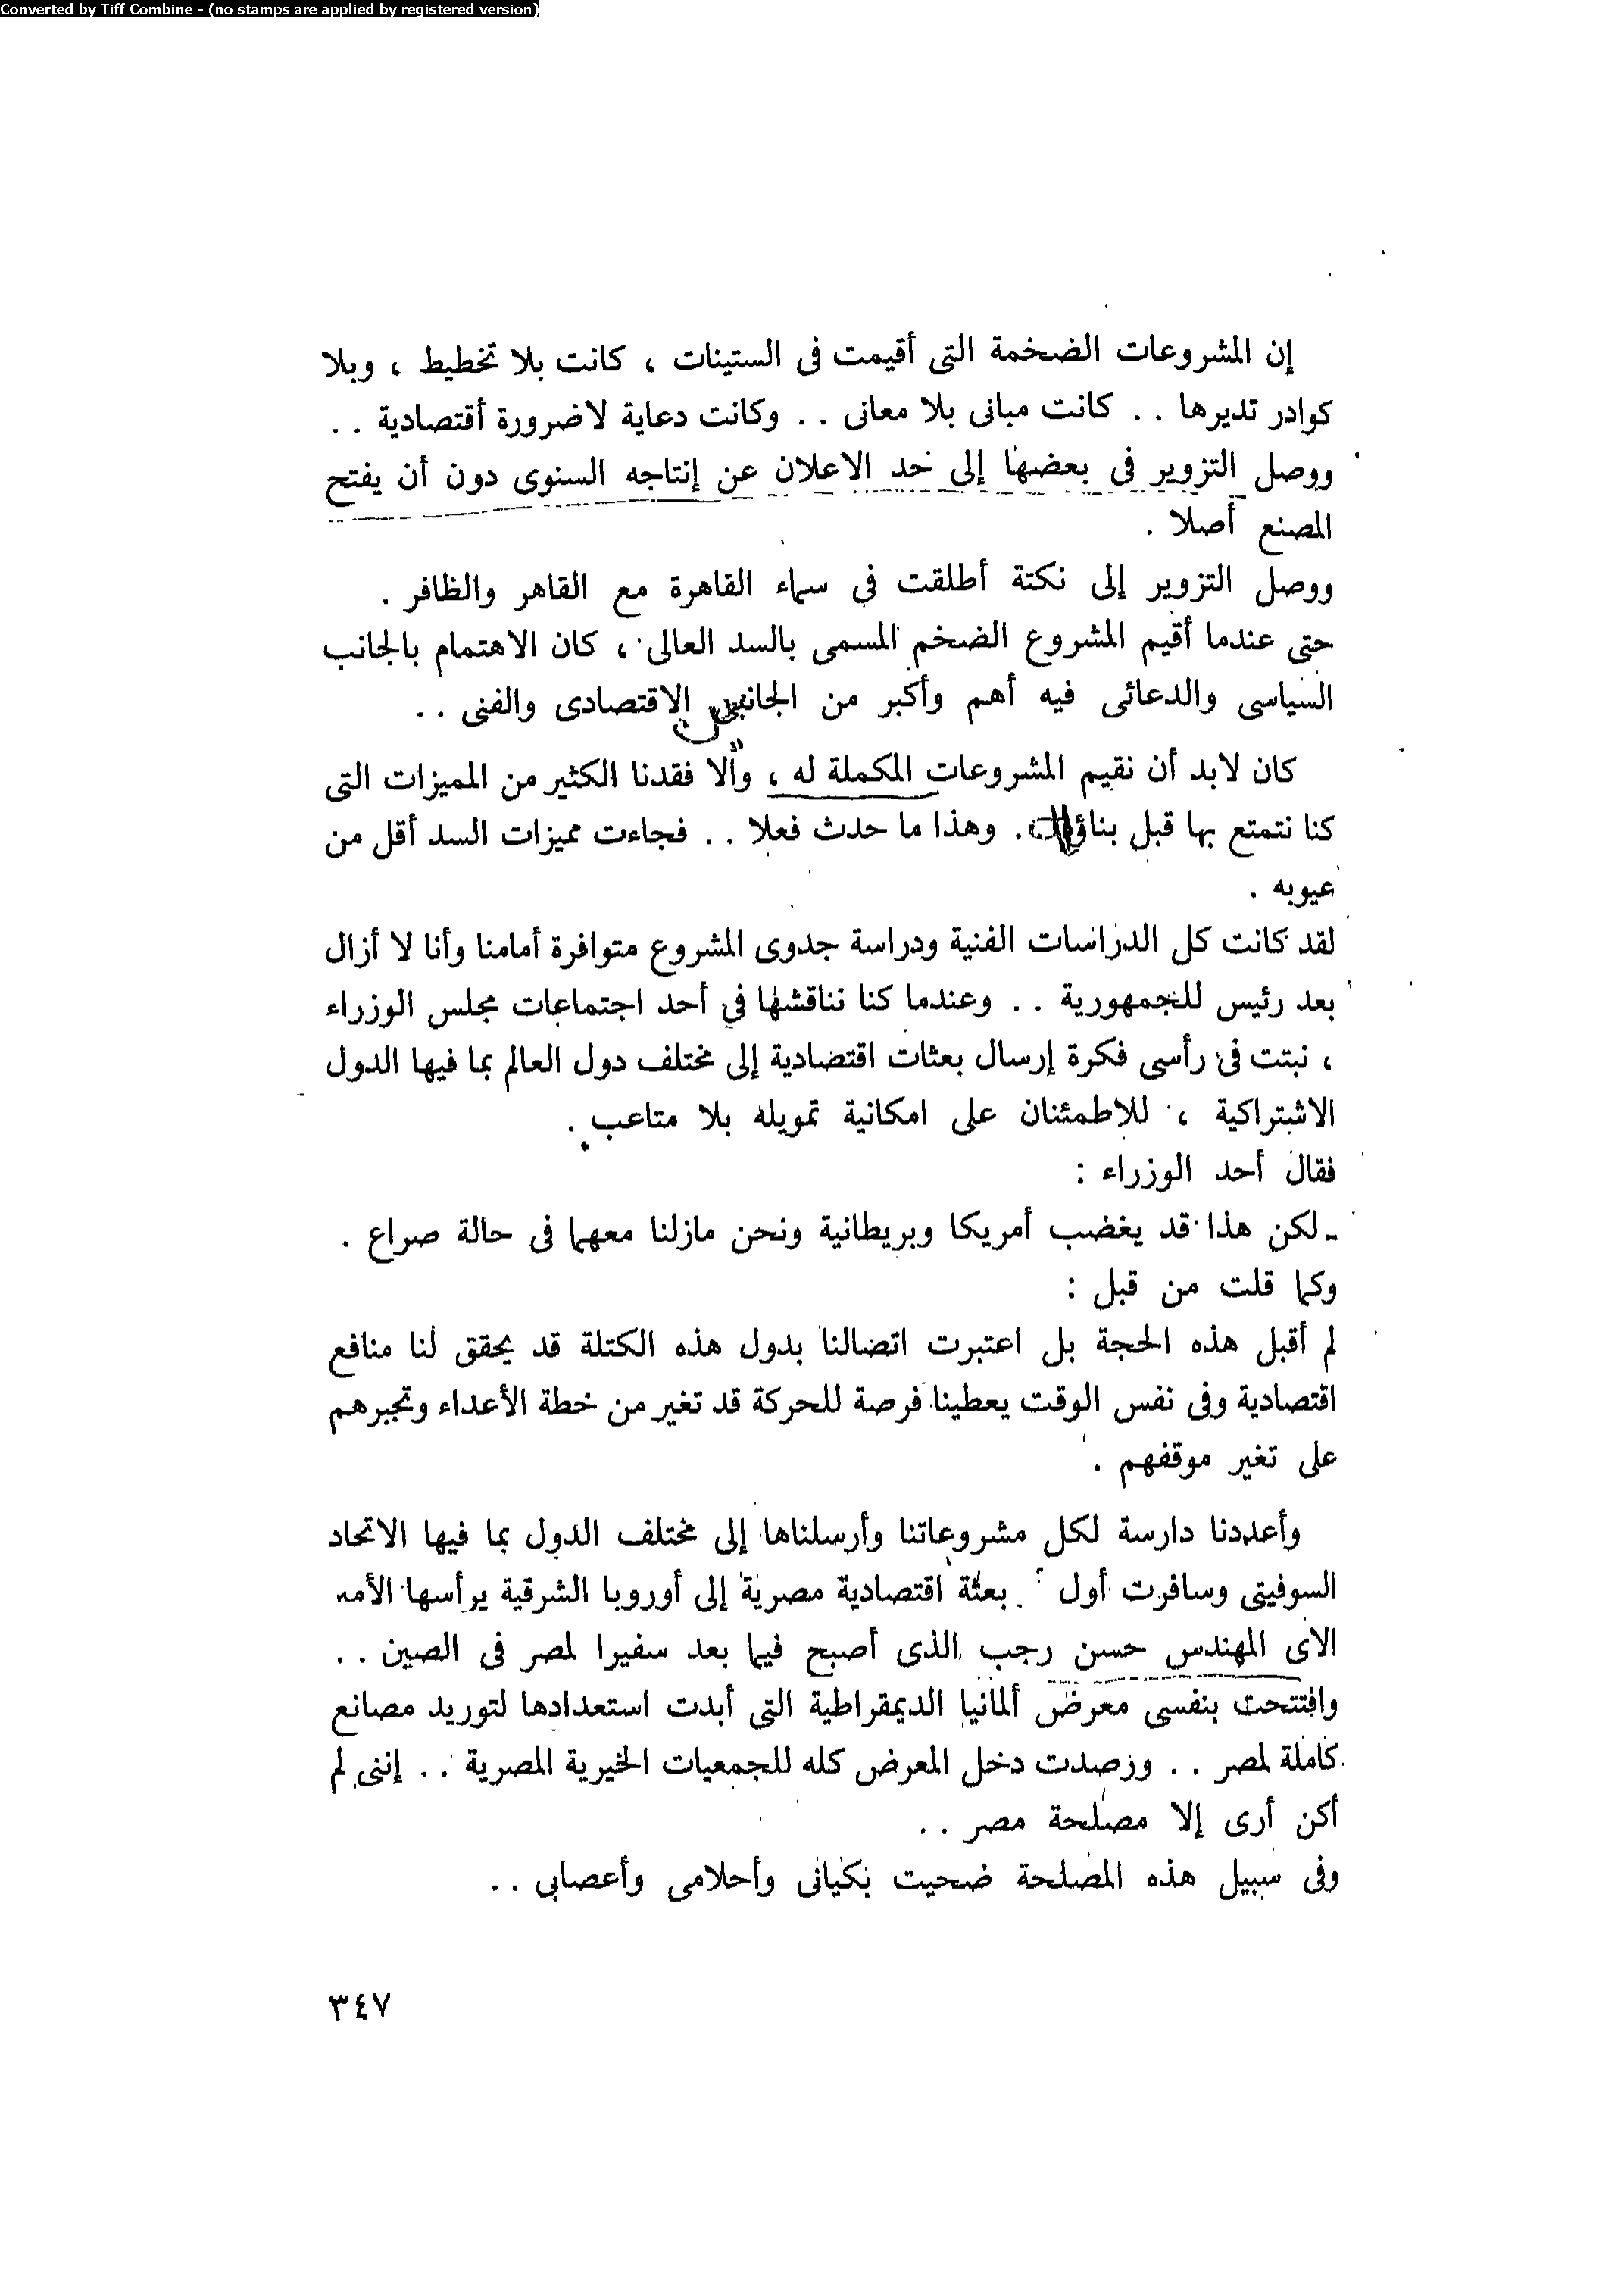 Converted by Tiff Combine - (no stamps are applied by registered version)
إن المشروعات الضخمة التى أقيمت فى الستينات ، كانت بلا تخطيط ، وبلا
كوادر تديرها . . كانت مبانى بلا معانى . . وكانت دعاية لاضرورة أقتصادية . .
ووصل التزوير فى بعضها إلى حد الاعلان عن إنتاجه السنوى دون أن يفتح
المصنع أصلا .
ووصل التزوير إلى نكتة أطلقت فى سماء القاهرة مع القاهر والظافر .
حتى عندما أقيم المشروع الضخم المسمى بالسد العالى ، كان الاهتمام بالجانب
السياسى والدعائى فيه أهم وأكبر من الاقتصادى والفنى . .
كان لابد أن نقيم المشروعات المكملة له ، وألا فقدنا الكثير من المميزات التى
كنا نتمتع بها قبل . وهذا ما حدث فعلا . . فجاءت مميزات السد أقل من
عيوبه .
لقد كانت كل الدراسات الفنية ودراسة جدوى المشروع متوافرة أمامنا وأنا لا أزال
بعد رئيس للجمهورية . . وعندما كنا نناقشها فى أحد اجتماعات مجلس الوزراء
، نبتت فى رأسى فكرة إرسال بعثات اقتصادية إلى مختلف دول العالم بما فيها الدول
الاشتراكية ، للاطمئنان على امكانية تمويله بلا متاعب .
فقال أحد الوزراء :
ـ لكن هذا قد يغضب أمريكا وبريطانية ونحن مازلنا معهما فى حالة صراع .
وكما قلت من قبل :
لم أقبل هذه الحجة بل اعتبرت اتصالنا بدول هذه الكتلة قد يحقق لنا منافع
اقتصادية وفى نفس الوقت يعطينا فرصة للحركة قد تغير من خطة الأعداء وتجبرهم
على تغير موقفهم .
وأعددنا دارسة لكل مشروعاتنا وأرسلناها إلى مختلف الدول بما فيها الاتحاد
السوفيتى وسافرت أول بعثة اقتصادية مصرية إلى أوروبا الشرقية يرأسها
الاى المهندس حسن رجب الذى أصبح فيما بعد سفيرا لمصر فى الصين . .
وافتتحت بنفسى معرض ألمانيا الديمقراطية التى أبدت استعدادها لتوريد مصانع
كاملة لمصر . . ورصدت دخل المعرض كله للجمعيات الخيرية المصرية . . إننى لم
أكن أرى إلا مصلحة مصر . .
وفى سبيل هذه المصلحة ضحيت بكيانى وأحلامى وأعصابى . .
٣٤٧